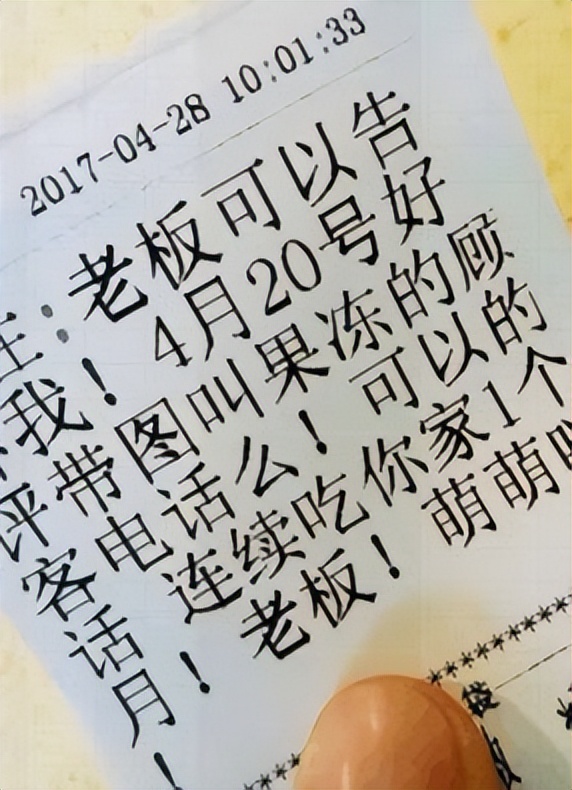 2017-04-28 10:01:33
注：老板可以告
诉我！4月20号好
评带图叫果冻的顾
客电话么！可以的
话连续吃你家1个
月！老板！萌萌哒
！